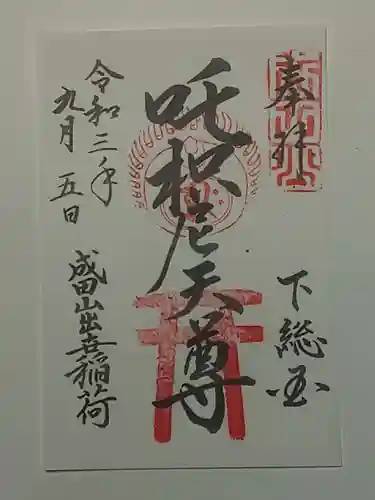 奉拝
下総国
吒枳尼天尊
令和三年
九月 五日
成田山出世稲荷